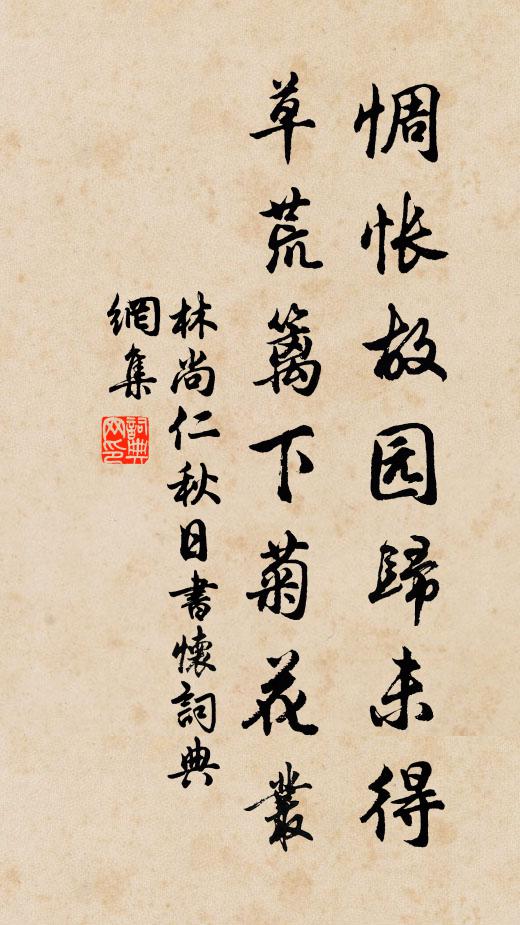 惆怅故园歸未得
草荒籬下菊花叢
林尚仁秋日書懷詞典
網集
詞典網印